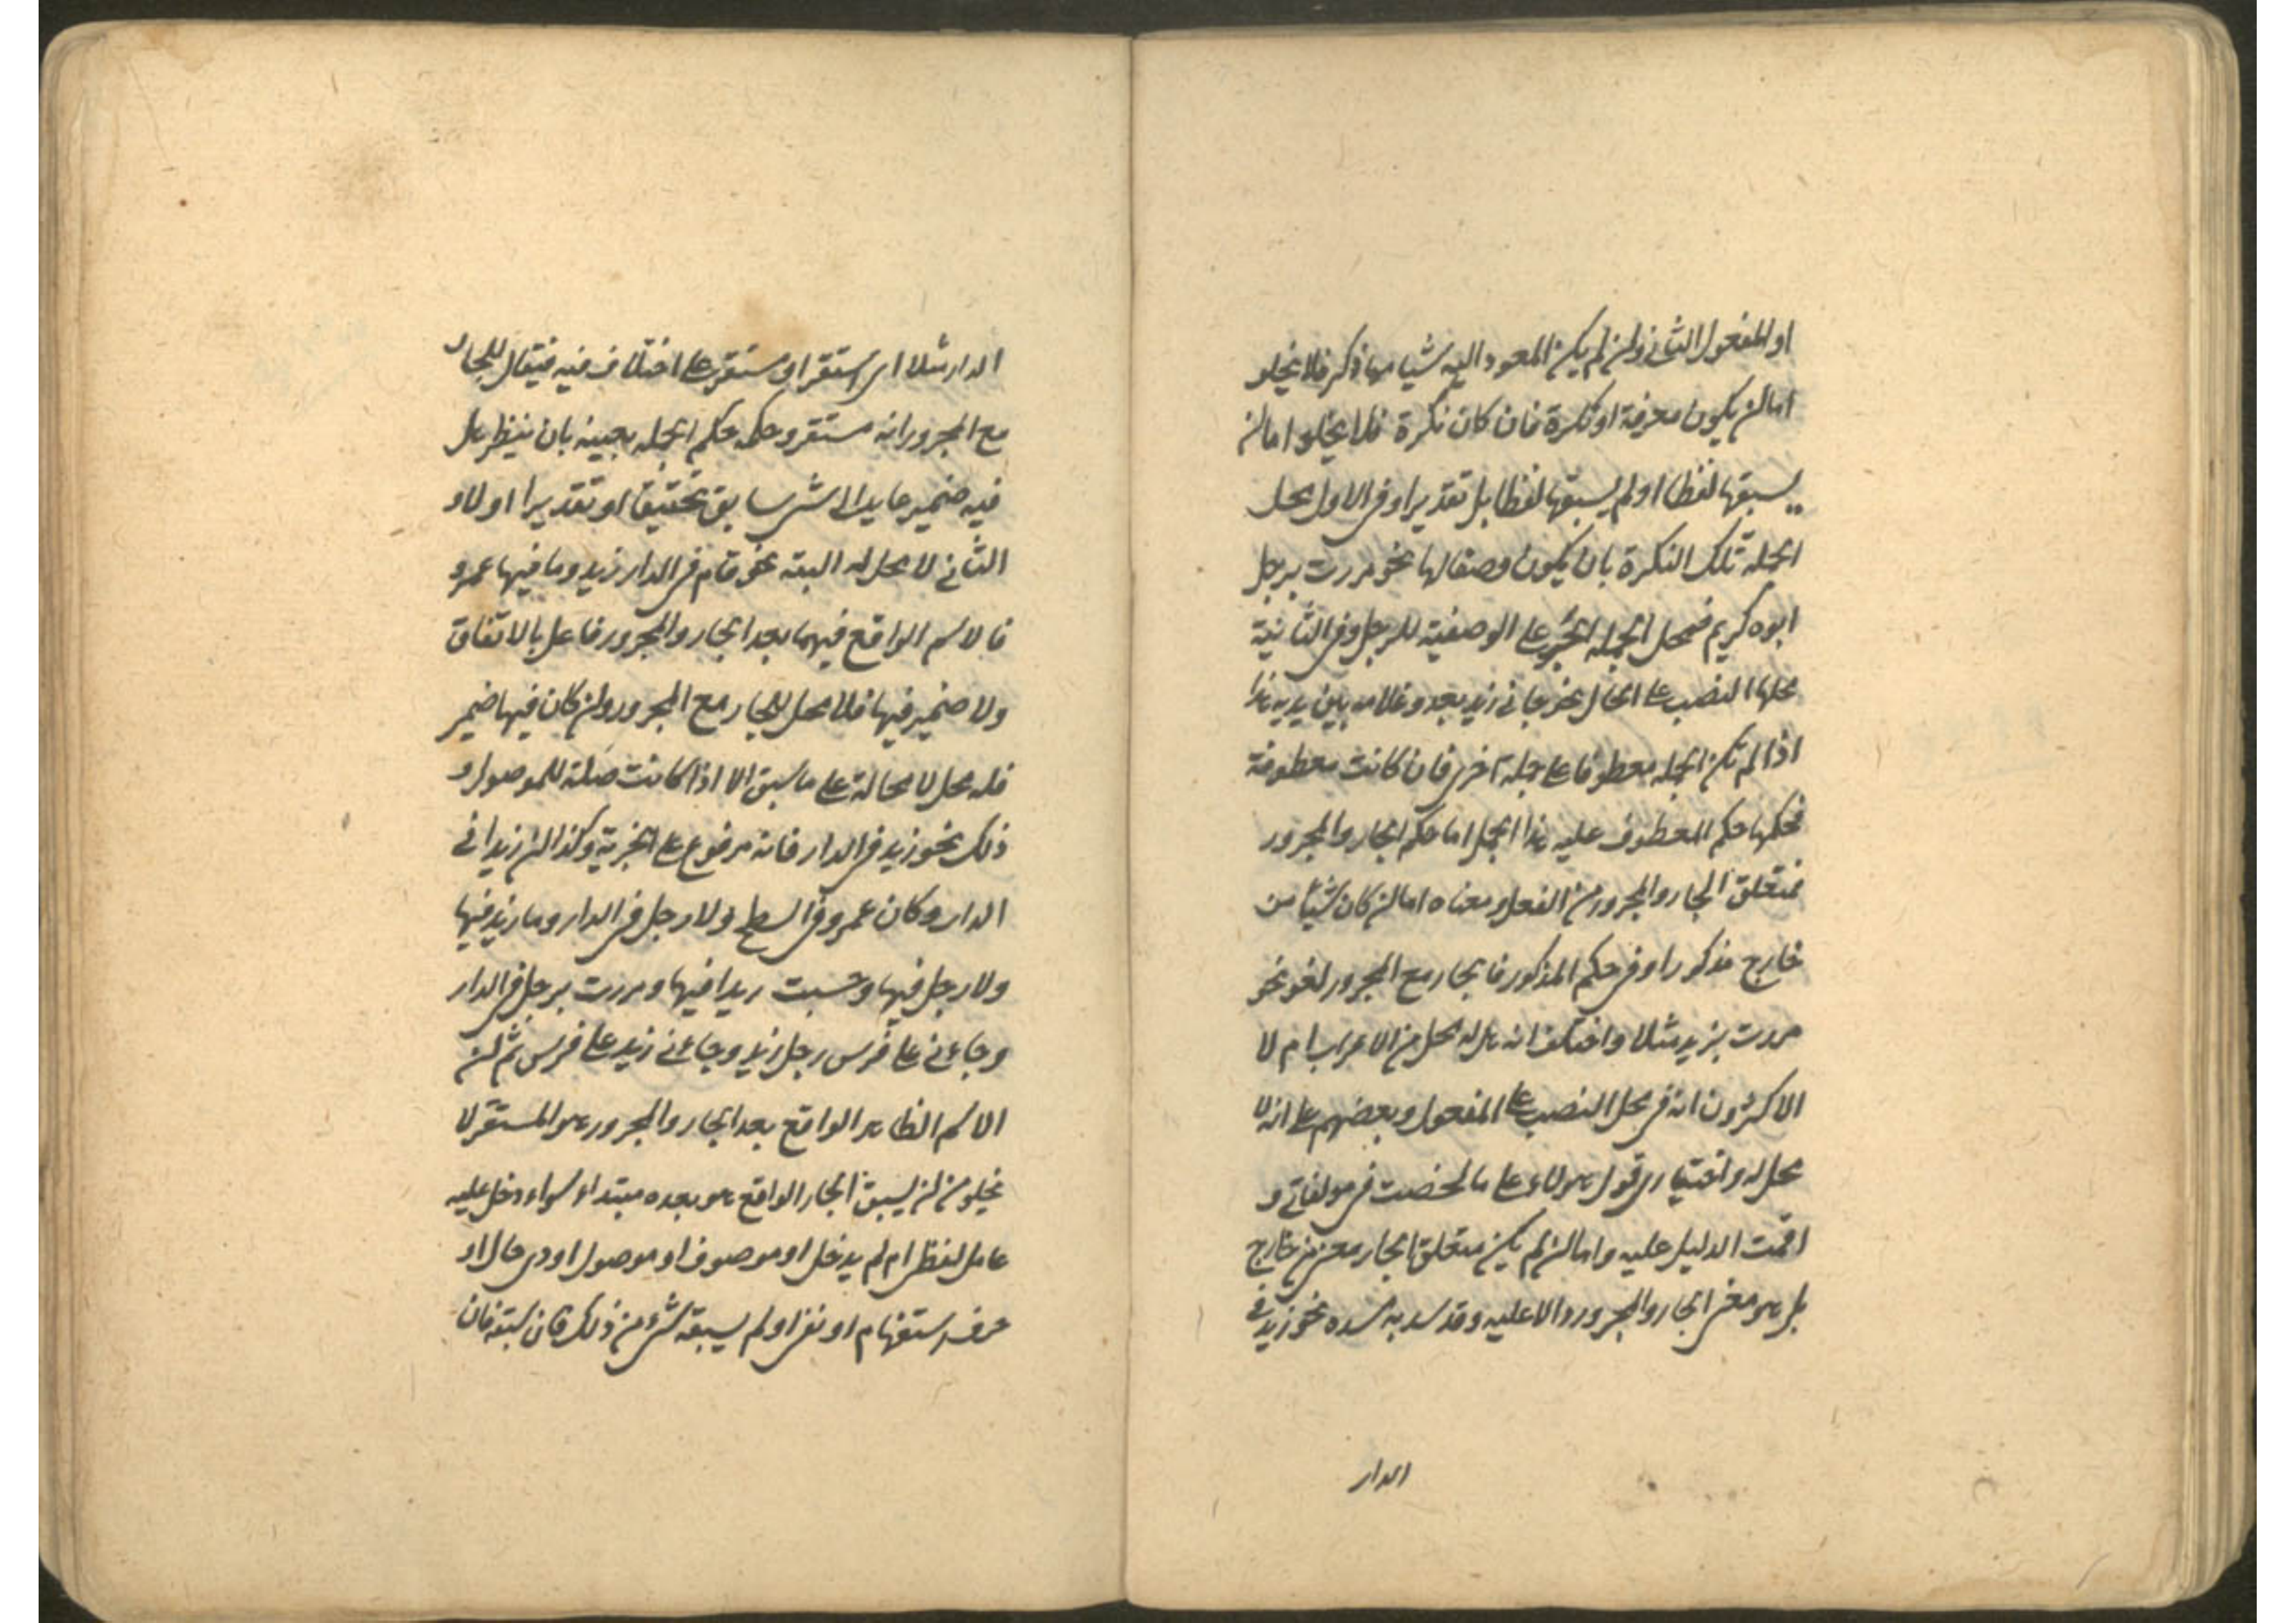 او المفعول الثانى وان لم يكن المعود اليه شيا مما ذكر فلا يخلو
اما ان يكون معرفة او نكرة فان كان نكرة فلا يخلو اما ان
يسبقها لفظا او لم يسبقها لفظا بل تقديرا وفى الاول محل
الجملة تلك النكرة بان يكون وصفا لها نحو مررت برجل
ابوه كريم فمحل الجملة الجر على الوصفية للرجل وفى الثانية
محلها النصب على الحال نحو جانى زيد يعدو غلامه بين يديه هذا
اذا لم تكن الجملة معطوفا على جملة اخرى فان كانت معطوفة
فحكمها حكم المعطوف عليه هذا الجمل اما حكم الجار والمجرور
فمتعلق الجار والمجرور من الفعل ومعناه اما ان كان شيئا من
خارج مذكورا وفى حكم المذكور فالجار مع المجرور لغو نحو
مررت بزيد مثلا واختلف انه هل له محل من الاعراب ام لا
الاكثرون انه فى محل النصب على المفعول وبعضهم على انه لا
محل له واختيارى قول هولاء على ما لخصت فى مولفاتى و
اقمت الدليل عليه واما ان لم يكن متعلق الجار معنى من خارج
بل هو معنى الجار والمجرور دالا عليه وقد سد به مسده نحو زيد فى
الدار
الدار مثلا اى استقر او مستقر على اختلاف فيه فيقال للجار
مع المجرور انه مستقر وحكمه حكم الجملة بعينه بان ينظر هل
فيه ضمير عايد الى شى سابق تحقيقا او تقديرا اولا و
الثانى لا محل له البتة نحو قام فى الدار زيد وما فيها عمرو
فالاسم الواقع فيهما بعد الجار والمجرور فاعل بالاتفاق
ولا ضمير فيها فلا محل للجار مع المجرور وان كان فيها ضمير
فله محل لا محالة على ما سبق الا اذا كانت صلة للموصول و
ذلك نحو زيد فى الدار فانه مرفوع على الخبرية وكذا ان زيدا فى
الدار وكان عمرو فى السطح ولا رجل فى الدار وما زيد فيها
ولا رجل فيها وحسبت زيدا فيها ومررت برجل فى الدار
وجاءنى على فرس رجل زيد وجاءنى زيد على فرس ثم ان
الاسم الظاهر الواقع بعد الجار والمجرور هو المستقر لا
يخلو من ان يسبق الجار الواقع هو بعده مبتداء سواء دخل عليه
عامل لفظى ام لم يدخل او موصوف او موصول او ذى حال او
حرف استفهام او نفى او لم يسبقه شىء من ذلك فان سبقه فان